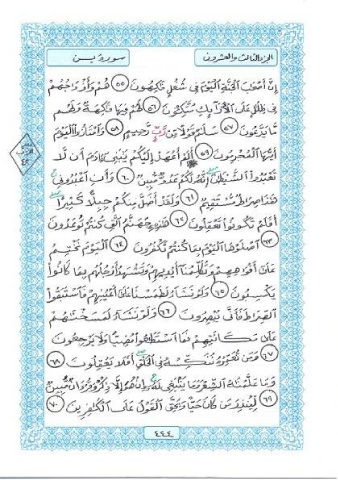 الجزء الثالث والعشرون
سورة يس
إِنَّ أَصْحَٰبَ ٱلْجَنَّةِ ٱلْيَوْمَ فِى شُغُلٍ فَٰكِهُونَ ٥٥ هُمْ وَأَزْوَٰجُهُمْ
فِى ظِلَٰلٍ عَلَى ٱلْأَرَآئِكِ مُتَّكِـُٔونَ ٥٦ لَهُمْ فِيهَا فَٰكِهَةٌ وَلَهُم
مَّا يَدَّعُونَ ٥٧ سَلَٰمٌ قَوْلًا مِّن رَّبٍّ رَّحِيمٍ ٥٨ وَٱمْتَٰزُوا۟ ٱلْيَوْمَ
أَيُّهَا ٱلْمُجْرِمُونَ ٥٩ أَلَمْ أَعْهَدْ إِلَيْكُمْ يَٰبَنِىٓ ءَادَمَ أَن لَّا
تَعْبُدُوا۟ ٱلشَّيْطَٰنَ إِنَّهُۥ لَكُمْ عَدُوٌّ مُّبِينٌ ٦٠ وَأَنِ ٱعْبُدُونِى
هَٰذَا صِرَٰطٌ مُّسْتَقِيمٌ ٦١ وَلَقَدْ أَضَلَّ مِنكُمْ جِبِلًّا كَثِيرًا
أَفَلَمْ تَكُونُوا۟ تَعْقِلُونَ ٦٢ هَٰذِهِۦ جَهَنَّمُ ٱلَّتِى كُنتُمْ تُوعَدُونَ
٦٣ ٱصْلَوْهَا ٱلْيَوْمَ بِمَا كُنتُمْ تَكْفُرُونَ ٦٤ ٱلْيَوْمَ نَخْتِمُ
عَلَىٰٓ أَفْوَٰهِهِمْ وَتُكَلِّمُنَآ أَيْدِيهِمْ وَتَشْهَدُ أَرْجُلُهُم بِمَا كَانُوا۟
يَكْسِبُونَ ٦٥ وَلَوْ نَشَآءُ لَطَمَسْنَا عَلَىٰٓ أَعْيُنِهِمْ فَٱسْتَبَقُوا۟
ٱلصِّرَٰطَ فَأَنَّىٰ يُبْصِرُونَ ٦٦ وَلَوْ نَشَآءُ لَمَسَخْنَٰهُمْ
عَلَىٰ مَكَانَتِهِمْ فَمَا ٱسْتَطَٰعُوا۟ مُضِيًّا وَلَا يَرْجِعُونَ
٦٧ وَمَن نُّعَمِّرْهُ نُنَكِّسْهُ فِى ٱلْخَلْقِ أَفَلَا يَعْقِلُونَ ٦٨
وَمَا عَلَّمْنَٰهُ ٱلشِّعْرَ وَمَا يَنۢبَغِى لَهُۥٓ إِنْ هُوَ إِلَّا ذِكْرٌ وَقُرْءَانٌ مُّبِينٌ
٦٩ لِّيُنذِرَ مَن كَانَ حَيًّا وَيَحِقَّ ٱلْقَوْلُ عَلَى ٱلْكَٰفِرِينَ ٧٠
٤٤٤